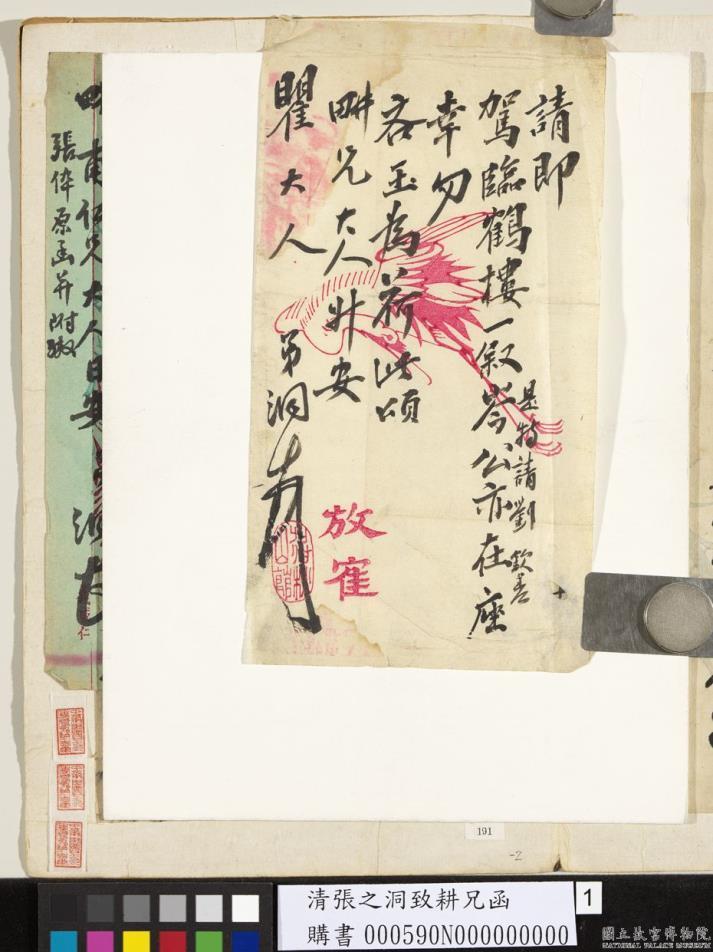 請即
駕臨鶴樓一叙岑公亦在座
是特請劉欽差
幸勿
吝玉為荷此頌
畊兄大人升安
瞿大人
弟洞
放寉
大人日安
張倅原函并附繳
191
-2
清張之洞致耕兄函
購書 000590N000000000
1
國立故宮博物院
NATIONAL PALACE MUSEUM